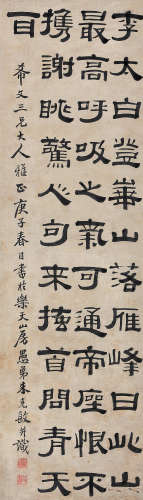 李太白登華山落雁峰曰此山
最高呼吸之氣可通帝座恨不
携謝眺驚人句来搔首問青天
耳
希文三兄大人雅正庚子春日書於樂天山房愚弟朱克敏并識